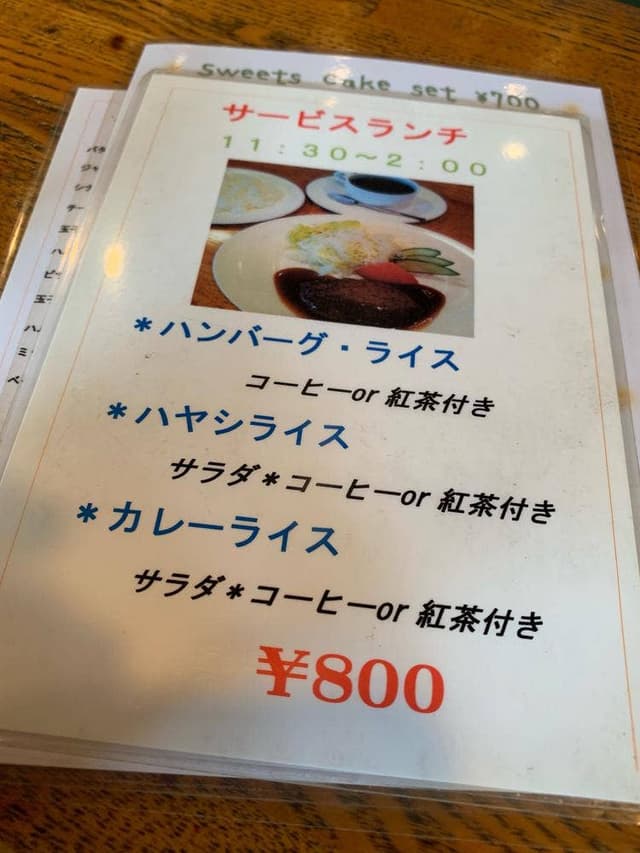 Sweets Cake set ¥700
サービスランチ
11:30～2:00
*ハンバーグ・ライス
コーヒーor 紅茶付き
*ハヤシライス
サラダ*コーヒーor 紅茶付き
*カレーライス
サラダ*コーヒーor 紅茶付き
¥800